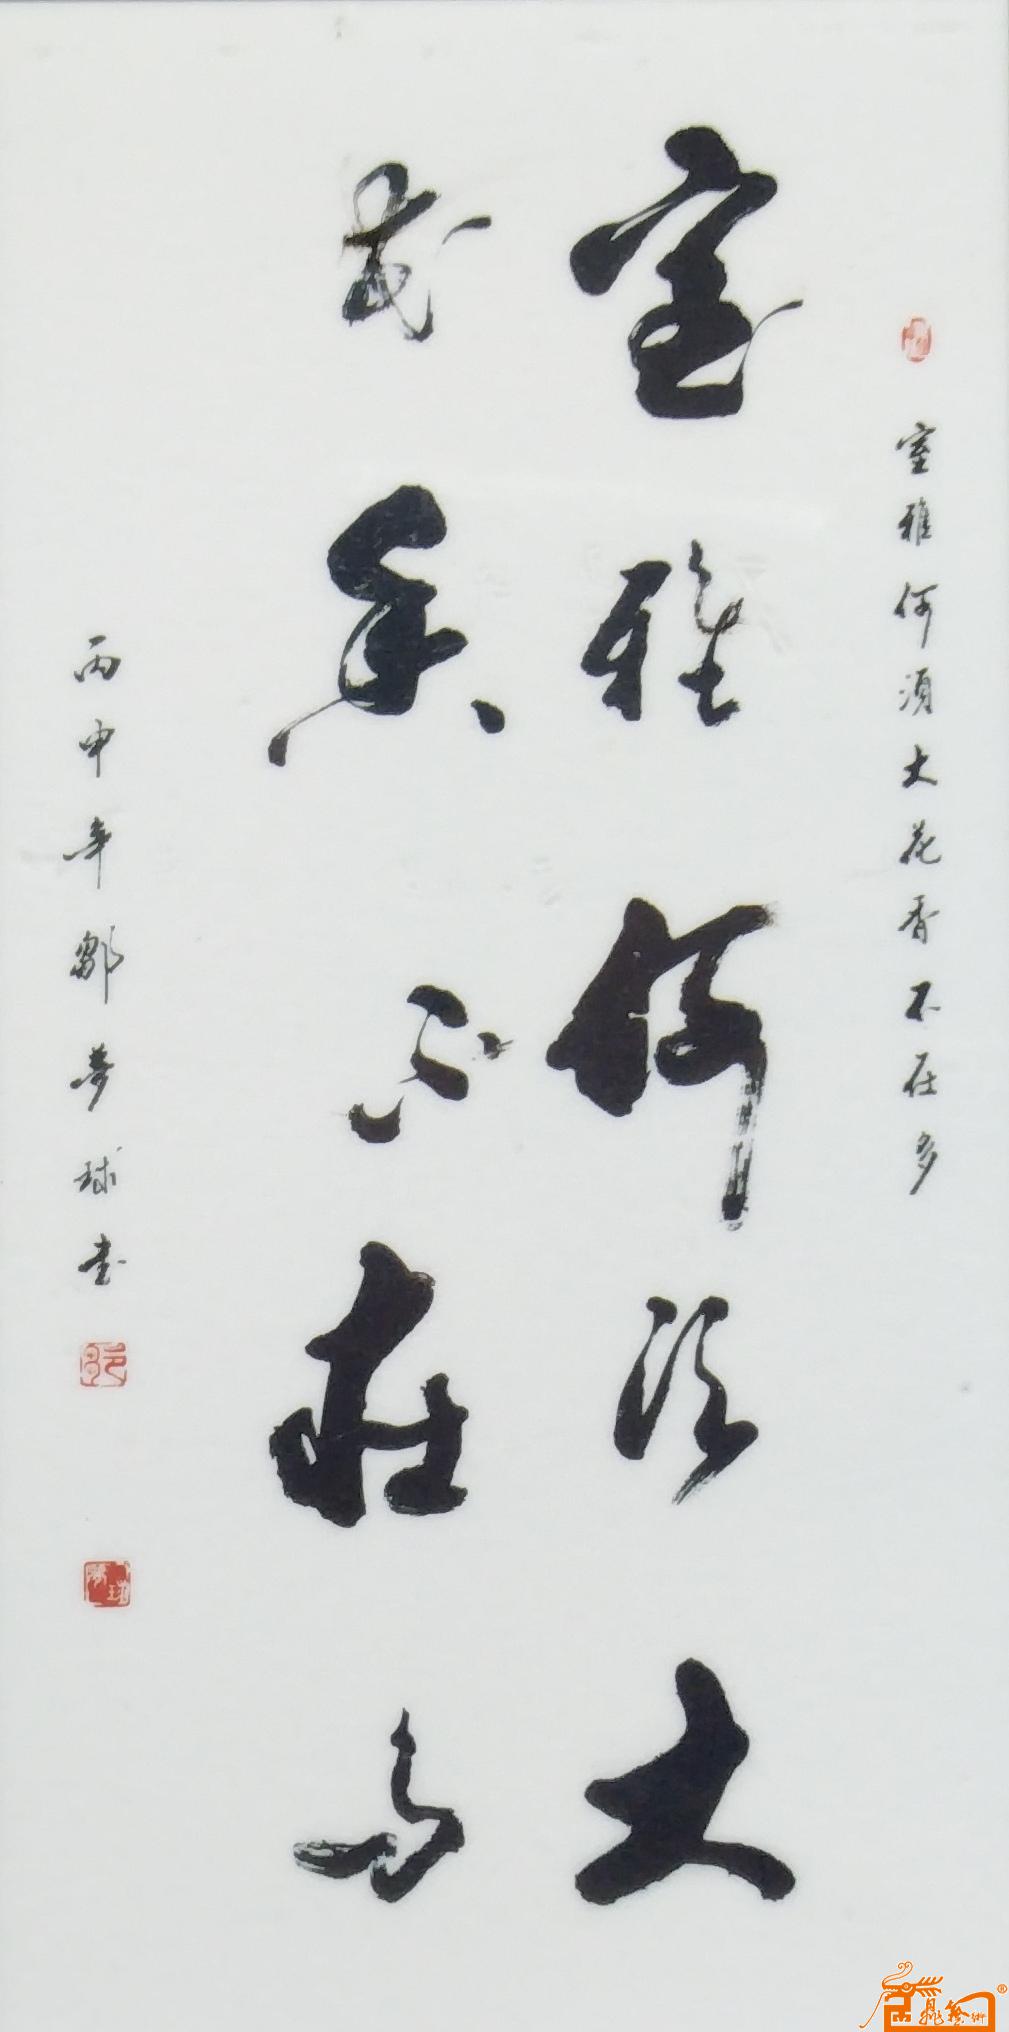 室雅何须大花香不在多
室雅何须大
花香不在多
丙申年鄒夢球书